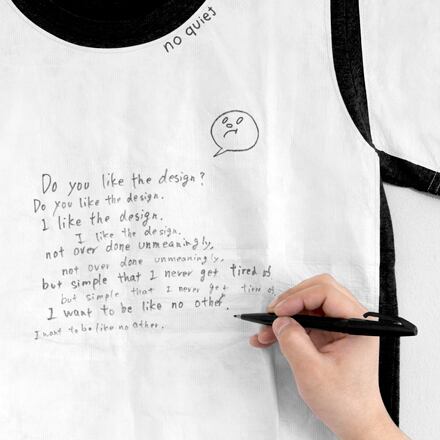 no quiet
Do you like the design?
Do you like the design.
I like the design.
I like the design.
not over done unmeaningly,
not over done unmeaningly,
but simple that I never get tired of
but simple that I never get tired of
I want to be like no other.
I want to be like no other.